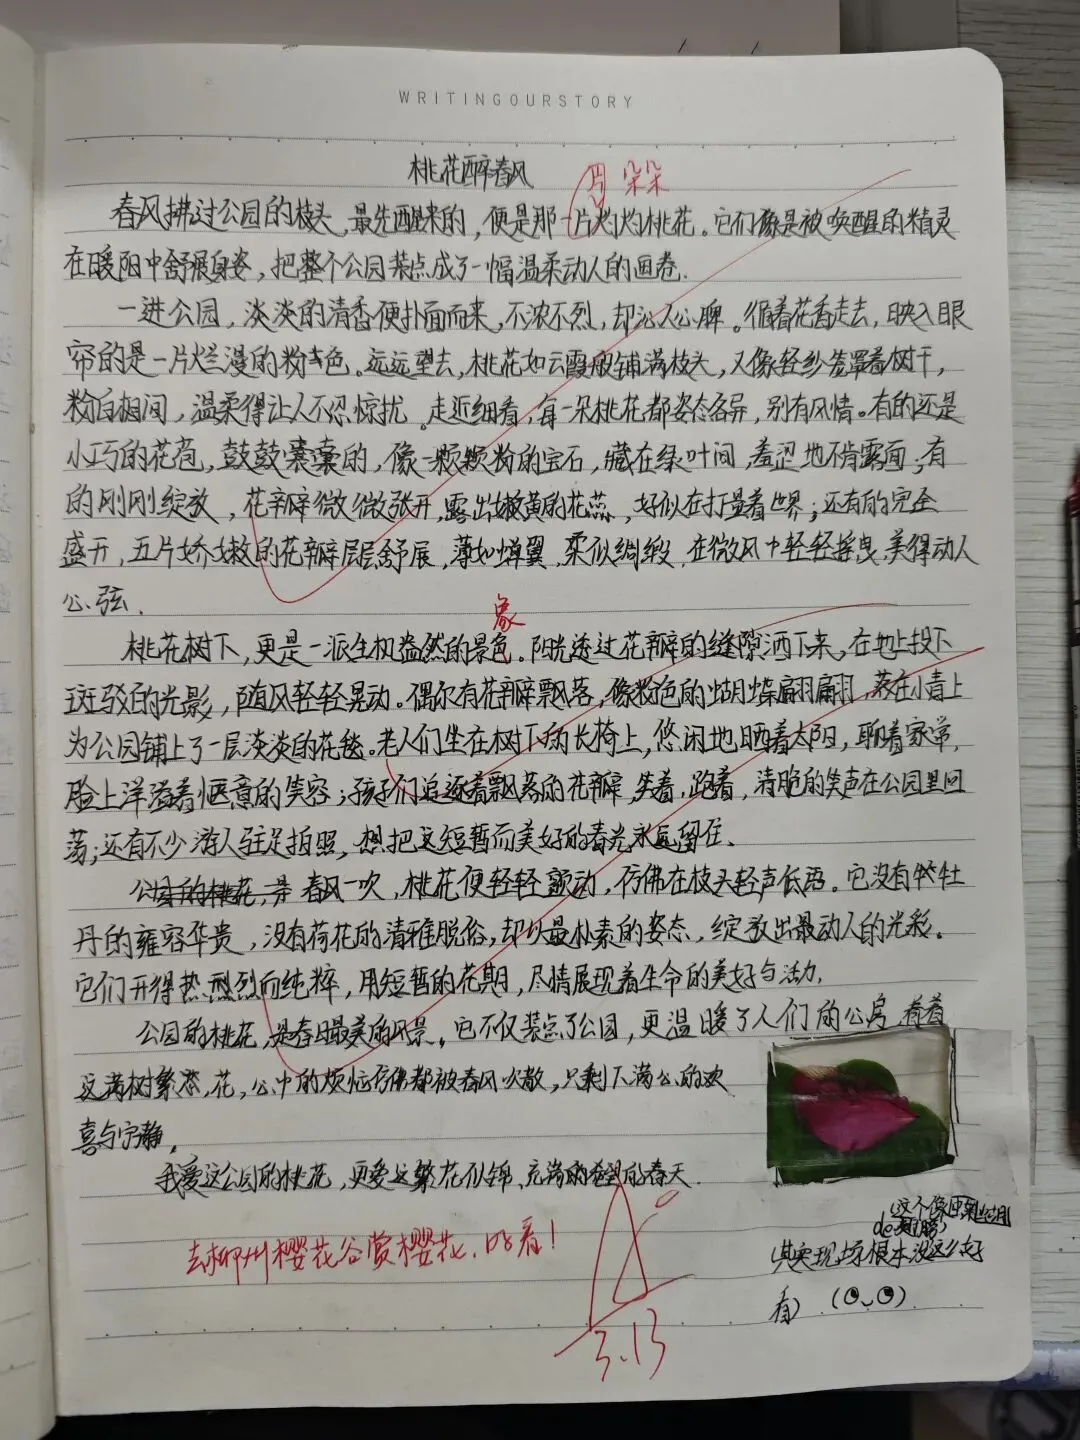 WRITINGOURSTORY
桃花醉春风
朵朵
春风拂过公园的枝头,最先醒来的,便是那一片灼灼桃花。它们像是被唤醒的精灵
在暖阳中舒展身姿,把整个公园装点成了一幅温柔动人的画卷.
一进公园,淡淡的清香便扑面而来,不浓不烈,却沁人心脾。循着花香走去,映入眼
帘的是一片烂漫的粉色。远远望去,桃花如云霞般铺满枝头,又像轻纱笼罩着树干,
粉白相间,温柔得让人不忍惊扰。走近细看,每一朵桃花都姿态各异,别有风情。有的还是
小巧的花苞,鼓鼓囊囊的,像一颗颗粉的宝石,藏在绿叶间,羞涩地不肯露面;有
的刚刚绽放,花瓣微微张开,露出嫩黄的花蕊,好似在打量着世界;还有的完全
盛开,五片娇嫩的花瓣层层舒展,薄如蝉翼,柔似绸缎,在微风中轻轻摇曳,美得动人
心弦.
象
桃花树下,更是一派生机盎然的景色。阳光透过花瓣的缝隙洒下来,在地上投下
斑驳的光影,随风轻轻晃动。偶尔有花瓣飘落,像粉色的蝴蝶翩翩,落在小青上
为公园铺上了一层淡淡的花毯。老人们坐在树下的长椅上,悠闲地晒着太阳,聊着家常,
脸上洋溢着惬意的笑容;孩子们追逐着飘落的花瓣,笑着,跑着,清脆的笑声在公园里回
荡;还有不少游人驻足拍照,想把这短暂而美好的春光永远留住.
春风一吹,桃花便轻轻颤动,仿佛在枝头轻声低语。它没有牡
丹的雍容华贵,没有荷花的清雅脱俗,却以最朴素的姿态,绽放出最动人的光彩。
它们开得热烈而纯粹,用短暂的花期,尽情展现着生命的美好与活力.
公园的桃花,是春日最美的风景。它不仅装点了公园,更温暖了人们的心房.看着
这满树繁花,心中的烦恼仿佛都被春风吹散,只剩下满心的欢
喜与宁静.
我爱这公园的桃花,更爱这繁花似锦、充满希望的春天.
去柳州樱花谷赏樱花,好看!
A
3.13
(这个像
其实现场根本没这么好
看)